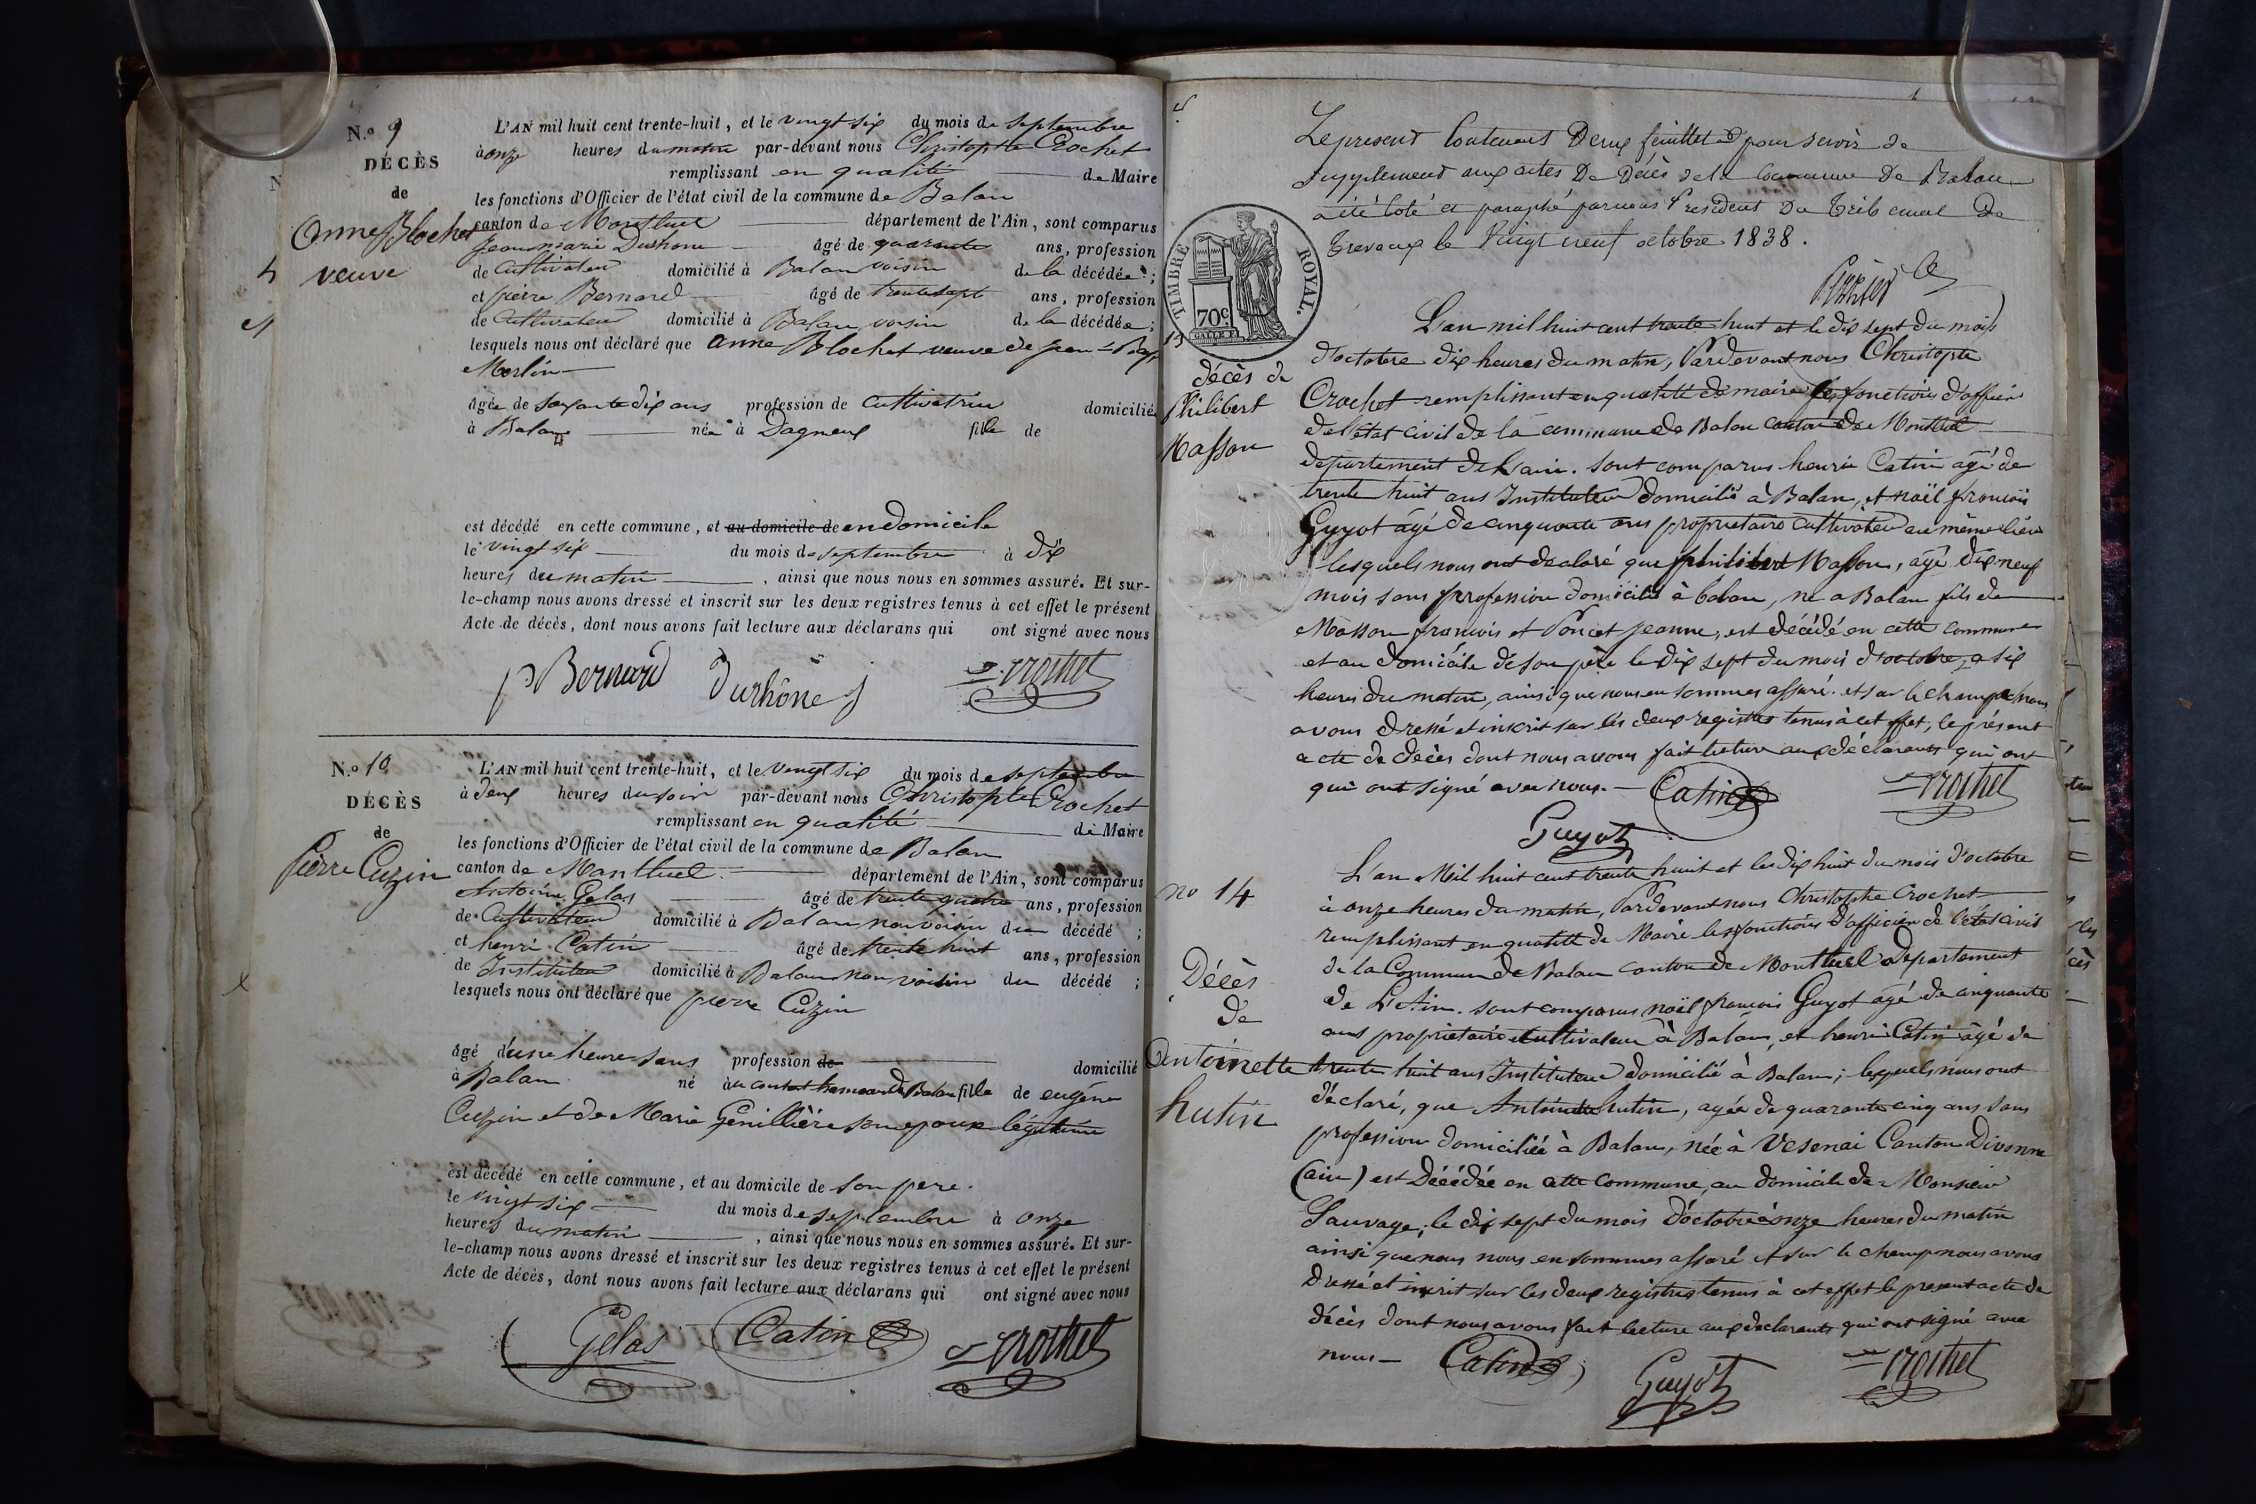 N.º 9
DÉCÈS
de
Anne Blochet
veuve
L'AN mil huit cent trente-huit, et le vingt six du mois de septembre
à onze heures du matin par-devant nous Christophe Crochet
remplissant en qualité de Maire
les fonctions d'Officier de l'état civil de la commune de Balan
canton de Montluel département de l'Ain, sont comparus
Jean marie Durhone âgé de quarante ans, profession
de Cultivateur domicilié à Balan voisin de la décédée ;
et pierre Bernard âgé de trente sept ans, profession
de Cultivateur domicilié à Balan voisin de la décédée ;
lesquels nous ont déclaré que anne Blochet veuve de jean-Bapt
Merlin
âgée de soixante dix ans profession de cultivatrice domicilié
à Balan née à Dagneux fille de
est décédé en cette commune, et au domicile de en domicile
le vingt six du mois de septembre à dix
heures du matin, ainsi que nous nous en sommes assuré. Et sur-
le-champ nous avons dressé et inscrit sur les deux registres tenus à cet effet le présent
Acte de décès, dont nous avons fait lecture aux déclarans qui ont signé avec nous
p Bernard Durhône j Crochet
N.º 10
DÉCÈS
de
Pierre Cuzin
L'AN mil huit cent trente-huit, et le vingt six du mois de septembre
à deux heures du soir par-devant nous Christophe Crochet
remplissant en qualité de Maire
les fonctions d'Officier de l'état civil de la commune de Balan
canton de Montluel département de l'Ain, sont comparus
Antoine Gelas âgé de trente quatre ans, profession
de Cultivateur domicilié à Balan non voisin du décédé ;
et henri Catin âgé de trente huit ans, profession
de Instituteur domicilié à Balan non voisin du décédé ;
lesquels nous ont déclaré que pierre Cuzin
âgé d'une heure sans profession de domicilié
à Balan né au hameau de Balan fils de eugène
Cuzin et de Marie Genillière son epouse légitime
est décédé en cette commune, et au domicile de son pere.
le vingt six du mois de septembre à onze
heures du matin, ainsi que nous nous en sommes assuré. Et sur-
le-champ nous avons dressé et inscrit sur les deux registres tenus à cet effet le présent
Acte de décès, dont nous avons fait lecture aux déclarans qui ont signé avec nous
Gelas Catin Crochet
Le present Contenant Deux feuillets pour servir de
supplement aux actes De Décès de la Commune De Balan
a été coté et paraphé par nous President Du Tribunal De
Trevoux le Vingt neuf octobre 1838.
TIMBRE ROYAL.
70c
13
décès de
philibert
Masson
L'an mil huit cent trente huit et le dix sept du mois
d'octobre dix heures du matin, Pardevant nous Christophe
Crochet remplissant en qualité de maire les fonctions d'officier
de l'état civil de la commune de Balan canton de Montluel
departement de l'ain. sont comparus henri Catin âgé de
trente huit ans Instituteur domicilié à Balan, et noël françois
Guyot âgé de cinquante ans proprietaire cultivateur au même lieu
lesquels nous ont declaré que philibert Masson, âgé dix neuf
mois sans profession domicilié à balan, né a Balan fils de
Masson françois et Poncet jeanne, est décédé en cette commune
et au domicile de son père le dix sept du mois d'octobre, a six
heures du matin, ainsi que nous en sommes assuré. et sur le champ nous
avons dressé et inscrit sur les deux registres tenus à cet effet, le présent
acte de decès dont nous avons fait lecture aux déclarants qui ont
qui ont signé avec nous.
Catin Crochet
Guyot
no 14
Décès
de
Antoinette
hutin
L'an Mil huit cent trente huit et le dix huit du mois d'octobre
à onze heures du matin, Pardevant nous Christophe Crochet
remplissant en qualité de Maire les fonctions d'officier de l'état civil
de la Commune de Balan canton de Montluel departement
de L'Ain. sont comparus noël françois Guyot âgé de cinquante
ans proprietaire cultivateur à Balan, et henri Catin âgé de
trente huit ans Instituteur domicilié à Balan; lesquels nous ont
déclaré, que Antoinette hutin, agée de quarante cinq ans sans
profession domiciliée à Balan, née à Vesenai Canton Divonne
(ain) est Décédée en cette commune, au domicile de Monsieur
Sauvage, le dix sept du mois d'octobre à onze heures du matin
ainsi que nous nous en sommes assuré et sur le champ nous avons
dressé et inscrit sur les deux registres tenus à cet effet le present acte de
décès dont nous avons fait lecture aux declarants qui ont signé avec
nous
Catin Guyot Crochet